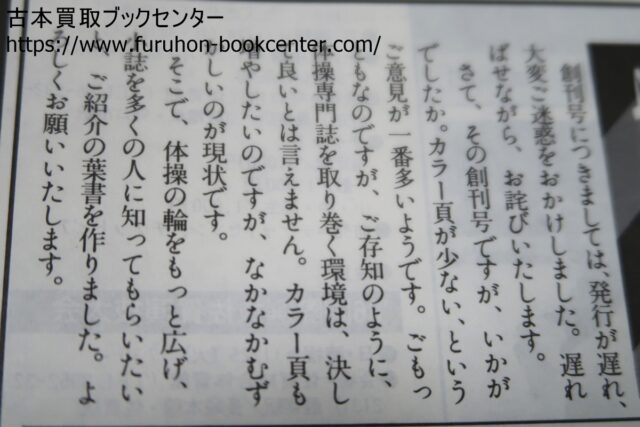 古本買取ブックセンター
https://www.furuhon-bookcenter.com/
創刊号につきましては、発行が遅れ、
大変ご迷惑をおかけしました。遅れ
ばせながら、お詫びいたします。
さて、その創刊号ですが、いかが
でしたか。カラー頁が少ない、という
ご意見が一番多いようです。ごもっ
ともなのですが、ご存知のように、
体操専門誌を取り巻く環境は、決し
て良いとは言えません。カラー頁も
増やしたいのですが、なかなかむず
かしいのが現状です。
そこで、体操の輪をもっと広げ、
誌を多くの人に知ってもらいたい
、ご紹介の葉書を作りました。よ
ろしくお願いいたします。